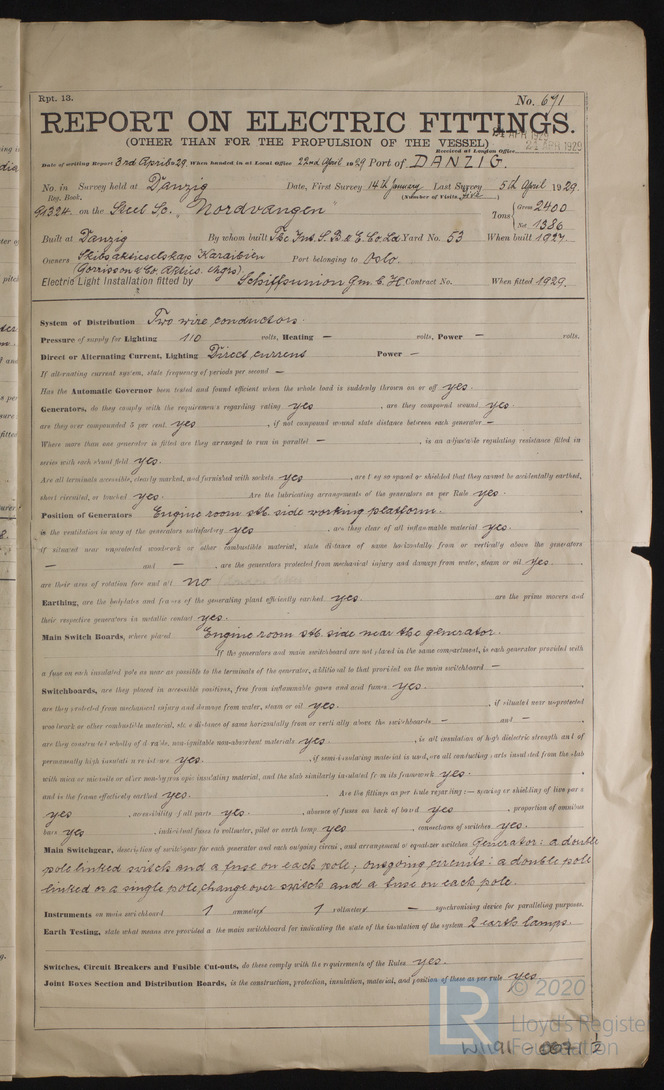 Rpt. 13.
No. 671
REPORT ON ELECTRIC FITTINGS.
(OTHER THAN FOR THE PROPULSION OF THE VESSEL)
24 APR 1929
Received at London Office
Date of writing Report 3rd April 29 When handed in at Local Office 22nd April 1929 Port of DANZIG.
No. in Survey held at Danzig Date, First Survey 14th January Last Survey 5th April 1929.
Reg. Book. (Number of Visits five)
on the Steel Sc. Nordvangen Tons { Gross 2400
Net 1386
Built at Danzig By whom built The Int. S. B & E. Co Ld Yard No. 53 When built 1929
Owners Skibsaktieselskap Karaibien Port belonging to Oslo.
Electric Light Installation fitted by Schiffsunion G.m.b.H. Contract No. When fitted 1929.
System of Distribution Two wire conductors.
Pressure of supply for Lighting 110 volts, Heating - volts, Power - volts.
Direct or Alternating Current, Lighting Direct current Power -
If alternating current system, state frequency of periods per second -
Has the Automatic Governor been tested and found efficient when the whole load is suddenly thrown on or off yes.
Generators, do they comply with the requirements regarding rating yes , are they compound wound yes.
are they over compounded 5 per cent. yes , if not compound wound state distance between each generator -
Where more than one generator is fitted are they arranged to run in parallel - , is an adjustable regulating resistance fitted in
series with each shunt field yes.
Are all terminals accessible, clearly marked, and furnished with sockets yes , are they so spaced or shielded that they cannot be accidentally earthed,
short circuited, or touched yes. Are the lubricating arrangements of the generators as per Rule yes.
Position of Generators Engine room stb. side working platform.
is the ventilation in way of the generators satisfactory yes , are they clear of all inflammable material yes.
if situated near unprotected woodwork or other combustible material, state distance of same horizontally from or vertically above the generators
- and - , are the generators protected from mechanical injury and damage from water, steam or oil yes.
are their axes of rotation fore and aft no
Earthing, are the bedplates and frames of the generating plant efficiently earthed yes. are the prime movers and
their respective generators in metallic contact yes.
Main Switch Boards, where placed Engine room stb. side near the generator.
If the generators and main switchboard are not placed in the same compartment, is each generator provided with
a fuse on each insulated pole as near as possible to the terminals of the generator, additional to that provided on the main switchboard -
Switchboards, are they placed in accessible positions, free from inflammable gases and acid fumes yes.
are they protected from mechanical injury and damage from water, steam or oil yes. , if situated near unprotected
woodwork or other combustible material, state distance of same horizontally from or vertically above the switchboards - and -
are they constructed wholly of durable, non-ignitable non-absorbent materials yes , is all insulation of high dielectric strength and of
permanently high insulation resistance yes. , if semi-insulating material is used, are all conducting parts insulated from the slab
with mica or micanite or other non-hygroscopic insulating material, and the slab similarly insulated from its framework yes.
and is the frame effectively earthed yes. Are the fittings as per Rule regarding:— spacing or shielding of live parts
yes , accessibility of all parts yes. , absence of fuses on back of board yes , proportion of omnibus
bars yes , individual fuses to voltmeter, pilot or earth lamp yes , connections of switches yes.
Main Switchgear, description of switchgear for each generator and each outgoing circuit, and arrangement of equalizer switches Generator: a double
pole linked switch and a fuse on each pole; outgoing circuits: a double pole
linked or a single pole change over switch and a fuse on each pole.
Instruments on main switchboard 1 ammeter 1 voltmeter - synchronising device for paralleling purposes.
Earth Testing, state what means are provided at the main switchboard for indicating the state of the insulation of the system 2 earth lamps.
Switches, Circuit Breakers and Fusible Cut-outs, do these comply with the requirements of the Rules yes.
Joint Boxes Section and Distribution Boards, is the construction, protection, insulation, material, and position of these as per rule yes.
LR
© 2020
Lloyd's Register
Foundation
W1191 - 0071 1/2